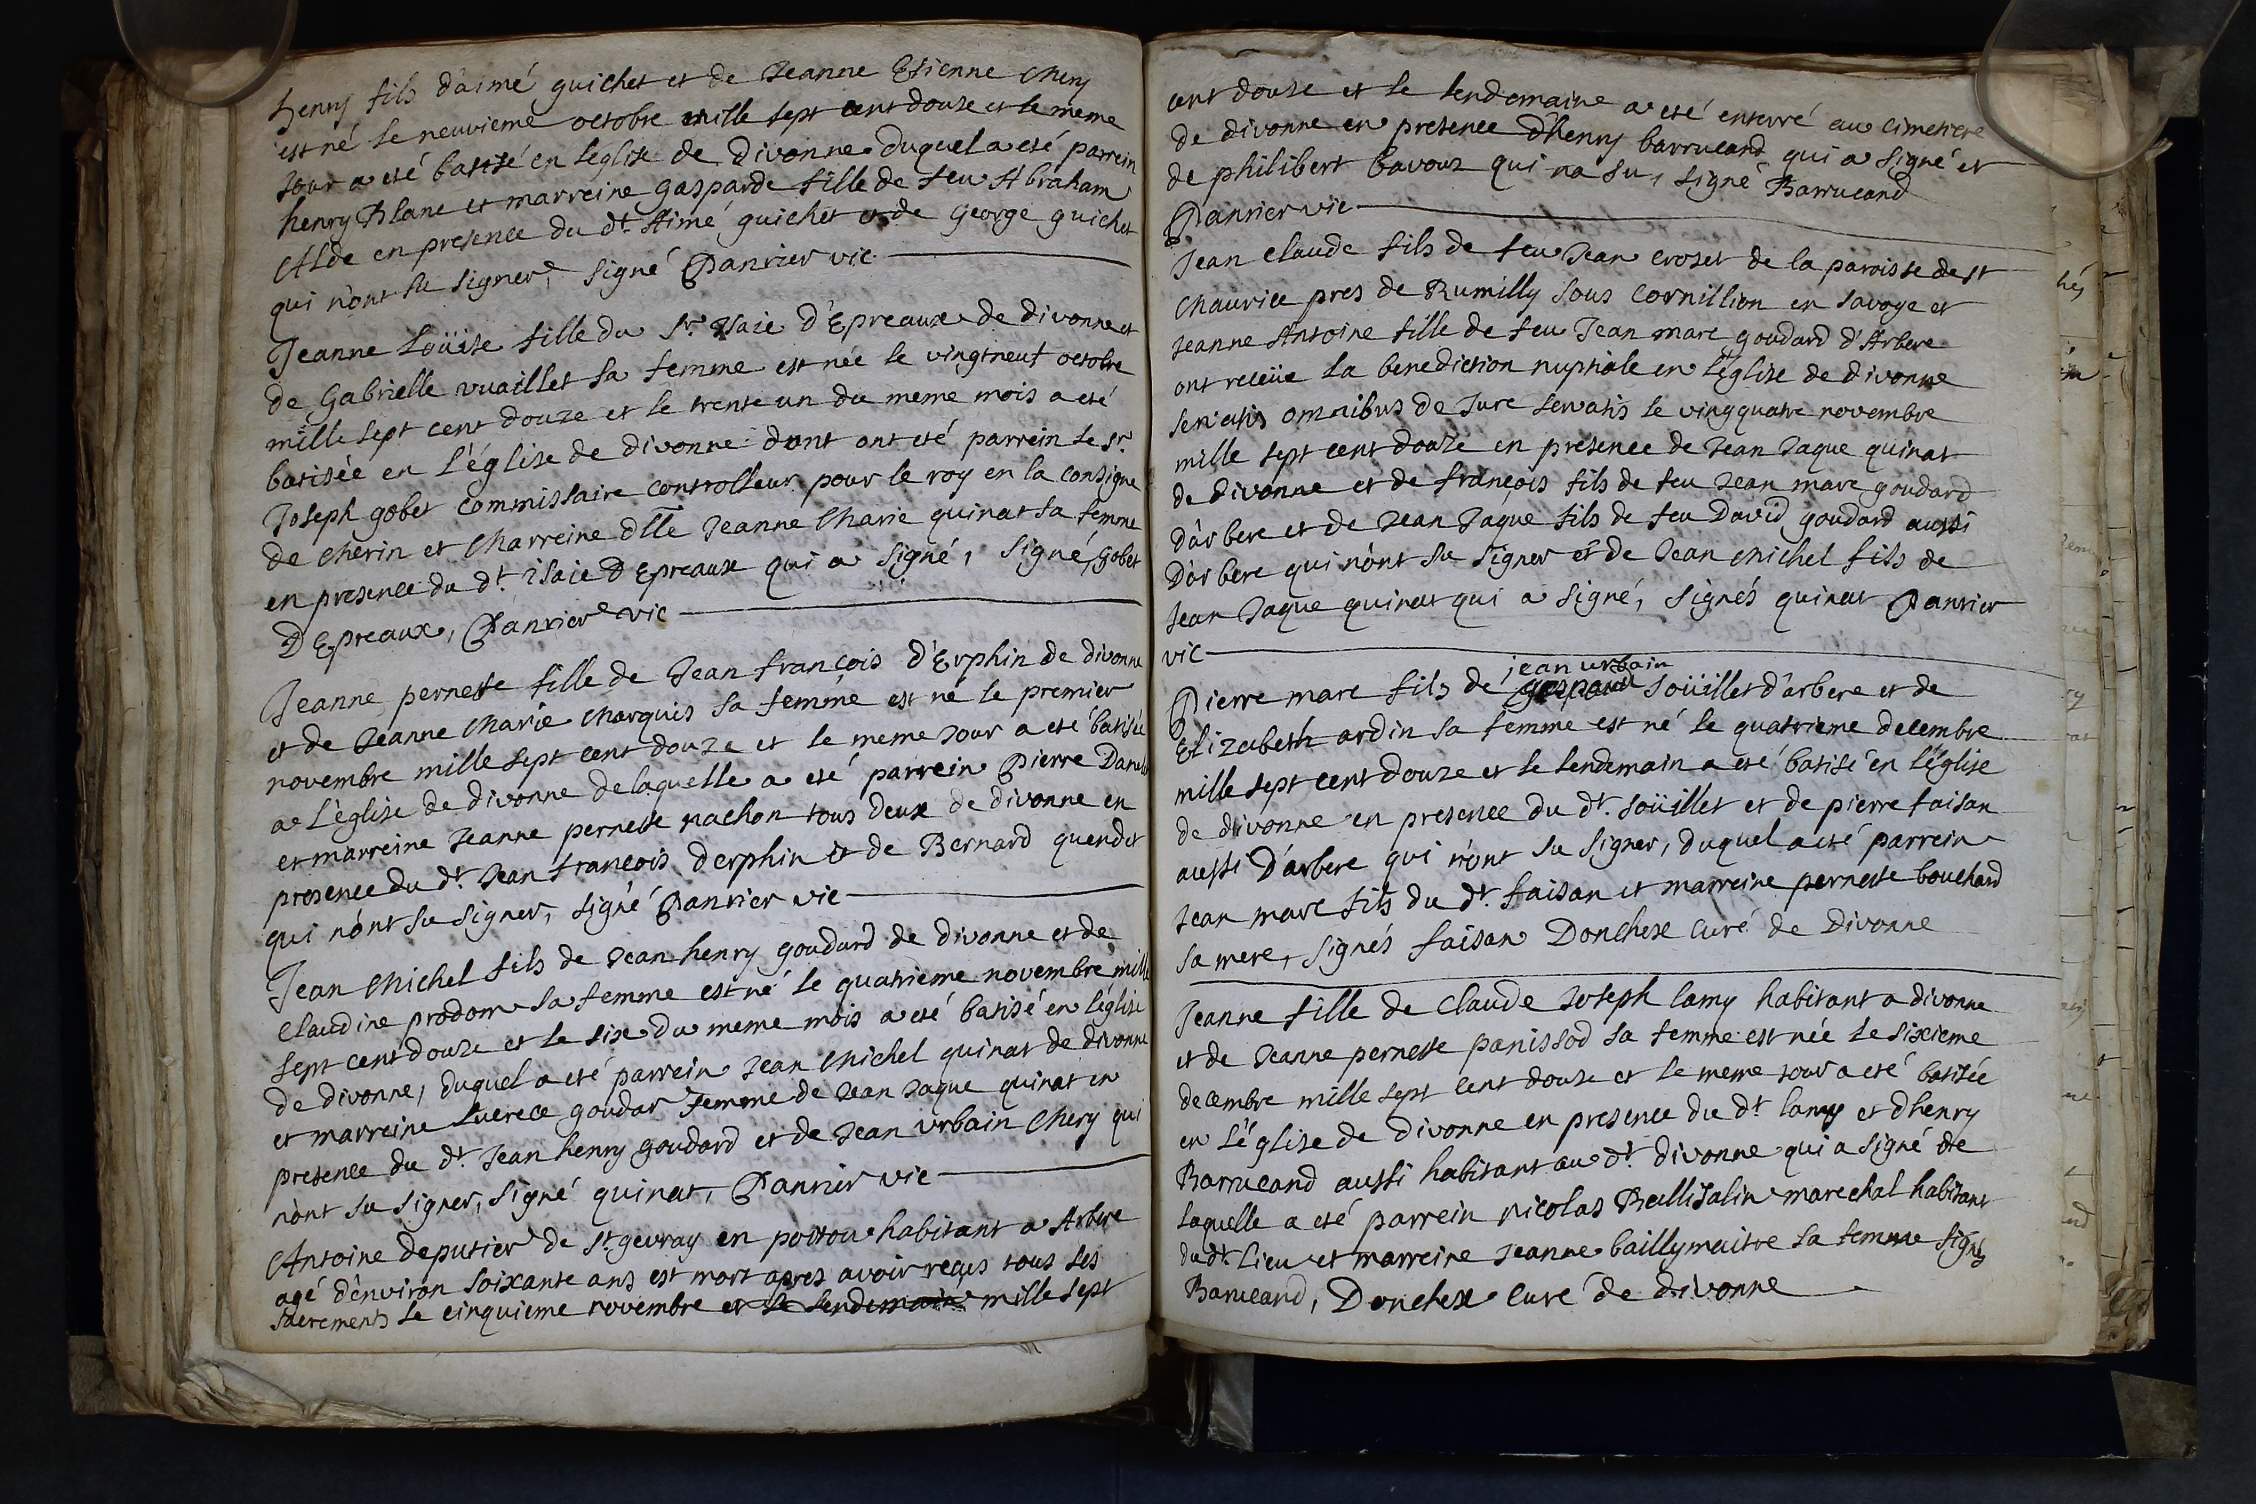 henry fils d'aimé guichet et de Jeanne Etienne Mery
est né le neuvieme octobre mille sept cent douze et le meme
jour a eté batisé en l'eglise de Divonne duquel a eté parrein
henry Blanc et marreine gasparde fille de feu Abraham
Alde en presence du dt. Aimé guichet et de George guichet
qui n'ont su signer, signé Panrier vic.
Jeanne Loüise fille du Sr. Isaie d'Epreaux de divonne et
de Gabrielle vuaillet sa femme est née le vingtneuf octobre
mille sept cent douze et le trente un du meme mois a eté
batisée en l'église de divonne dont ont eté parrein le Sr.
Joseph gobet commissaire controlleur pour le roy en la consigne
de Cherin et Marreine dlle Jeanne Marie quinat sa femme
en presence du dt. isaie D Epreaux qui a signé, signé, Gobet
D Epreaux, Panrier vic
Jeanne pernette fille de Jean françois d'Erphin de divonne
et de Jeanne Marie Marquis sa femme est né le premier
novembre mille sept cent douze et le meme jour a eté batisée
a l'église de divonne de laquelle a eté parrein Pierre
et marreine Jeanne pernette nachon tous deux de divonne en
presence du dt. Jean françois derphin et de Bernard quendet
qui n'ont su signer, signé Panrier vic
Jean Michel fils de Jean henry goudard de divonne et de
Claudine prodom sa femme est né le quatrieme novembre mille
sept cent douze et le six du meme mois a eté batisé en l'église
de divonne, duquel a eté parrein Jean Michel quinat de divonne
et marreine Lucrece goudar femme de Jean Jaque quinat en
presence du dt. Jean henry goudard et de Jean urbain Mery qui
n'ont su signer, signé quinat, Panrier vic
Antoine deputier de St. gevray en poitou habitant a Arbere
agé d'environ soixante ans est mort apres avoir reçus tous ses
sacrements le cinquieme novembre et le lendemain mille sept
cent douze et le lendemain a eté enterré au cimetiere
de divonne en presence d'henry barrucand qui a signé et
de philibert bavouz qui na su, signé Barrucand
Panrier vic
Jean claude fils de feu Jean crozet de la paroisse de st
Maurice pres de Rumilly sous Cornillion en savoye et
Jeanne Antoine fille de feu Jean marc goudard d'Arbere
ont receüe la benediction nuptiale en l'église de divonne
servatis omnibus de Jure servatis le vingquatre novembre
mille sept cent douze en presence de Jean Jaque quinat
de divonne et de françois fils de feu Jean marc goudard
d'arbere et de Jean Jaque fils de feu David goudard aussi
D'arbere qui n'ont su signer et de Jean Michel fils de
Jean Jaque quinat qui a signé, signés quinat Panrier
vic
jean urbain
Pierre marc fils de gaspard soüillet d'arbere et de
Elizabeth ardin sa femme est né le quatrieme decembre
mille sept cent douze et le lendemain a eté batisé en l'église
de divonne en presence du dt. soüillet et de pierre faisan
aussi D'arbere qui n'ont su signer, duquel a eté parrein
Jean marc fils du dt. faisan et marreine pernette bouchard
sa mere, signés faisan Donchex curé de Divonne
Jeanne fille de claude Joseph lamy habitant a divonne
et de Jeanne pernette panissod sa femme est née le sixieme
decembre mille sept cent douze et le meme jour a eté batisée
en l'église de divonne en presence du dt lamy et dhenry
Barrucand aussi habitant au dt. divonne qui a signé de
laquelle a eté parrein nicolas Ballisalin marechal habitant
du dt. Lieu et marreine Jeanne baillymaitre sa femme signés
Barrucand, Donchex curé de divonne